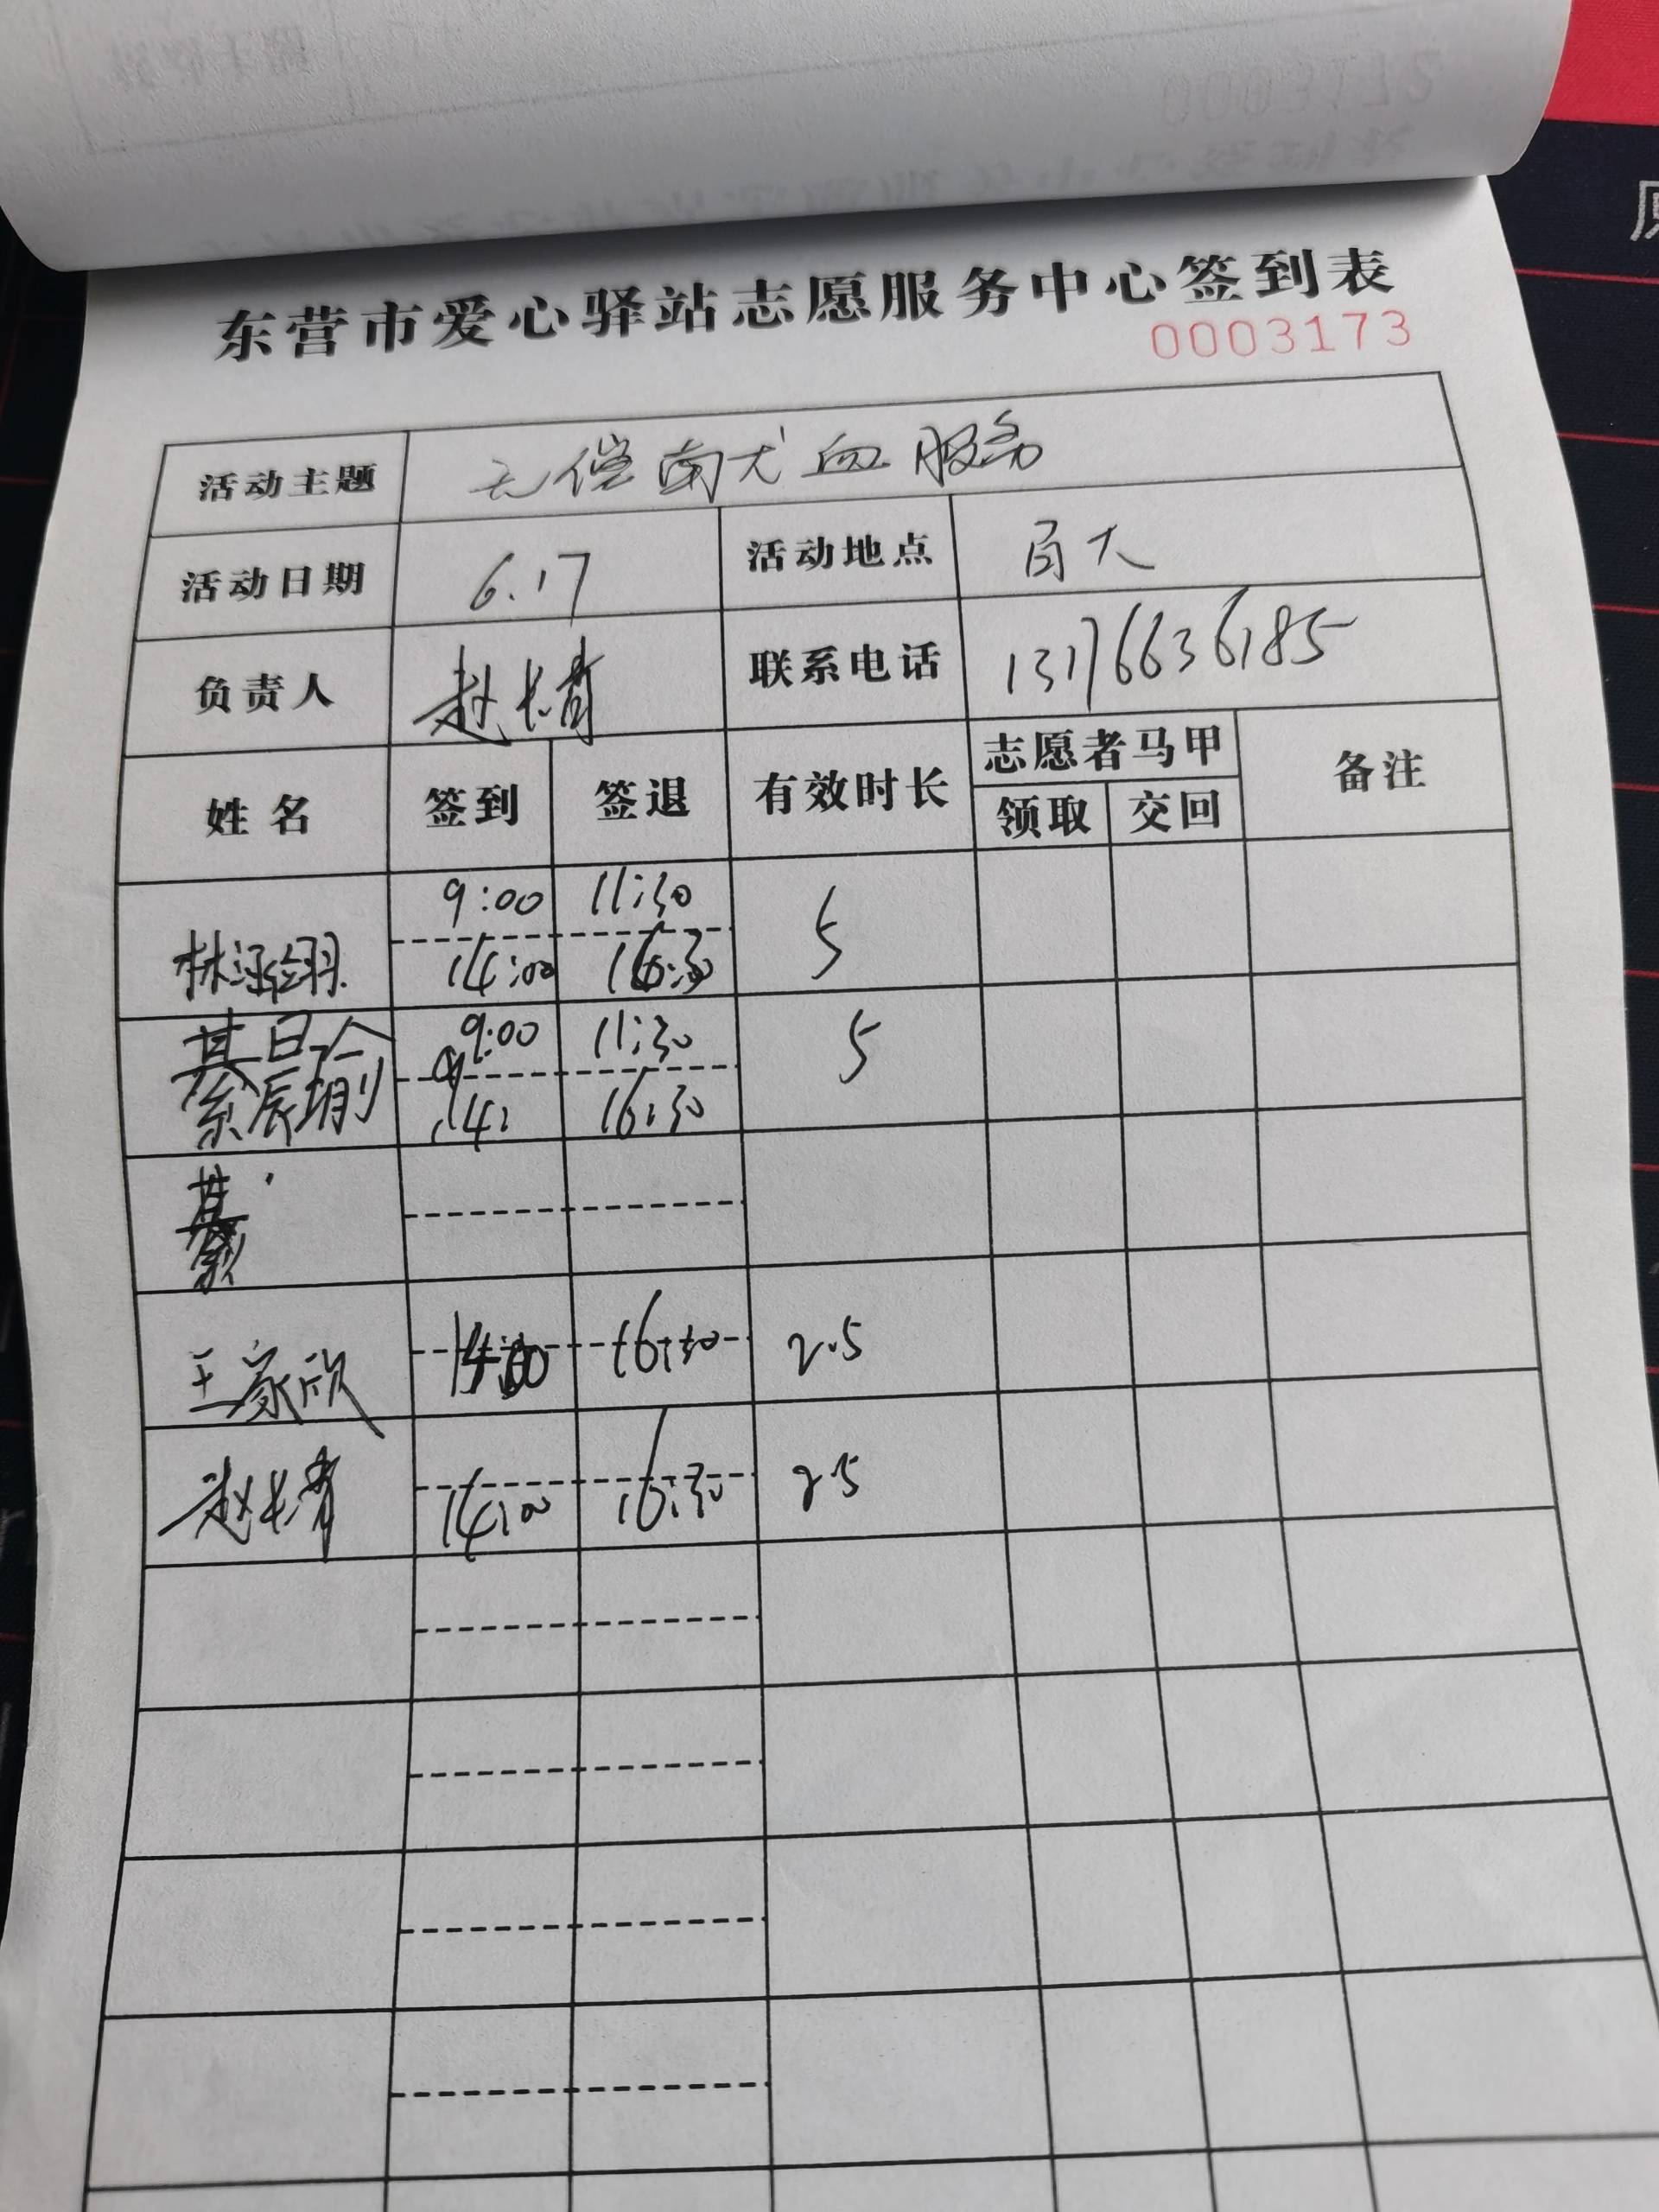 东营市爱心驿站志愿服务中心签到表
0003173
活动主题 无偿献血服务
活动日期 6.17 活动地点 百大
负责人 赵长青 联系电话 13176636185
姓名 签到 签退 有效时长 志愿者马甲 备注
领取 交回
9:00 11:30 5
林涵翊 14:00 16:30
綦晨瑜 9:00 11:30 5
14: 16:30
綦
王家欣 14:00 16:30 2.5
赵长青 14:00 16:30 2.5